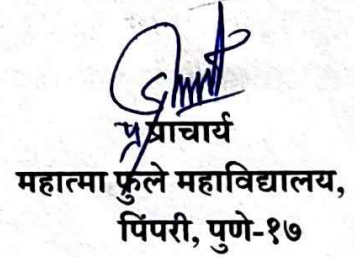 प्र प्राचार्य
महात्मा फुले महाविद्यालय,
पिंपरी, पुणे-१७